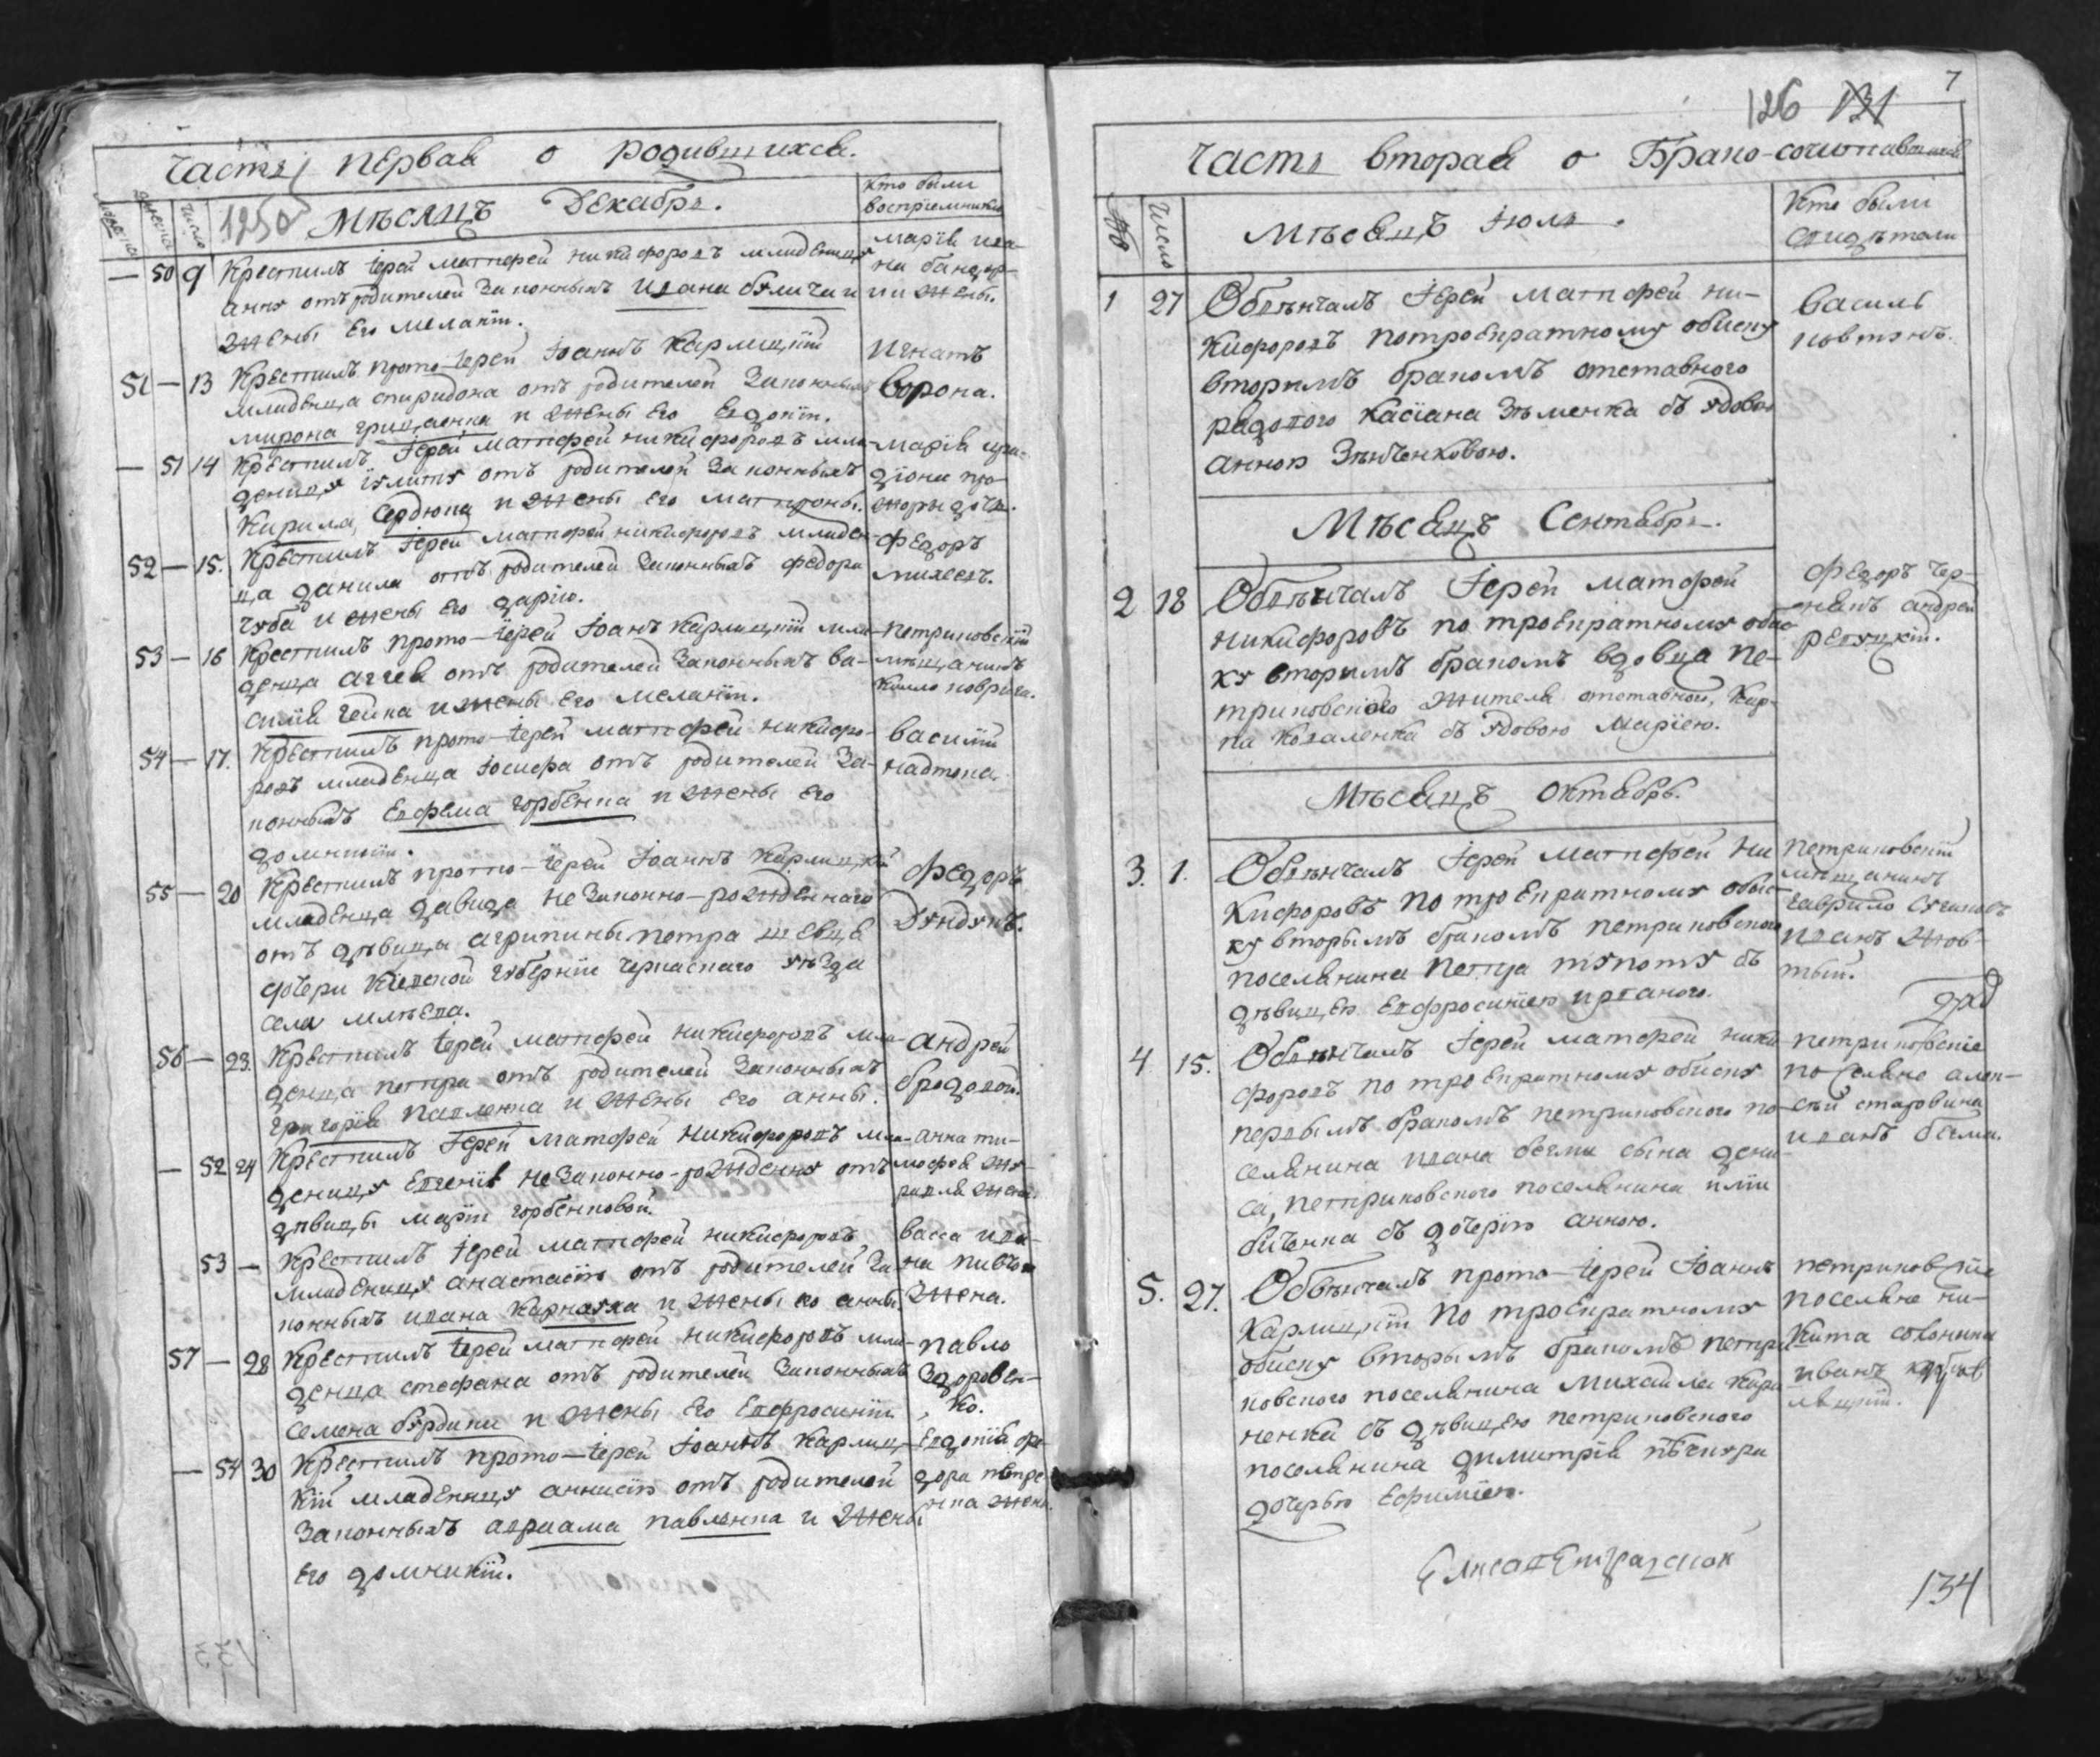 часть первая о родившихся.
1250 Мѣсяцъ Декабрь.
Кто были
воспрiемники
50 9 Крестилъ iерей матθей никифоровъ младеницу
анну отъ родителей законныхъ ивана булича и
жены его меланiи.
марiя ива-
на бандур-
ки жены.
51 — 13 Крестилъ прото-iерей Iоаннъ Карлицкiй
младенца спиридона отъ родителей законныхъ
мирона грицаенка и жены его евдокiи.
игнатъ
ворона.
— 51 14 Крестилъ Iерей матθей никифоровъ мла-
деницу iулиту отъ родителей законныхъ
Кирила Сердюка и жены его матроны.
52 — 15. Крестилъ Iерей матθей никифоровъ младен-
ца данила отъ родителей законныхъ федора
чуба и жены его дарiи.
федоръ
михеевъ.
53 — 16 Крестилъ прото-iерей Iоаннъ Карлицкiй мла-
денца аггея отъ родителей законныхъ ва-
силiя гейка и жены его меланiи.
петриковскiй
мѣщанинъ
54 — 17. Крестилъ прото-iерей матθей никифо-
ровъ младенца Iосифа отъ родителей за-
конныхъ Евфема горбенка и жены его
домникiи.
василiй
надтока.
55 — 20 Крестилъ прото-iерей Iоаннъ Карлицкiй
младенца давида незаконно-рожденнаго
отъ дѣвицы агрипины петра шевця
дочери Кiевской губернiи черкаскаго уѣзда
села млѣева.
федоръ
Дундукъ.
56 — 23. Крестилъ iерей матθей никифоровъ мла-
денца петра отъ родителей законныхъ
григорiя павленка и жены его анны.
андрей
бродовой.
— 52 24 Крестилъ Iерей матθей никифоровъ мла-
деницу Евгенiю незаконно-рожденну отъ
дѣвицы марiи горбенковой.
анна ти-
мофея жу-
равля жена.
53 — Крестилъ iерей матθей никифоровъ
младеницу анастасiю отъ родителей за-
конныхъ ивана Карнауха и жены его анны.
васса ива-
на пивня
жена.
57 — 28 Крестилъ iерей матθей никифоровъ мла-
денца стефана отъ родителей законныхъ
семена бурдики и жены его Евфросинiи
павло
здоровен-
ко.
— 54 30 Крестилъ прото-iерей Iоаннъ Карлиц-
кiй младенницу аннисiю отъ родителей
законныхъ авраама павленка и жены
его домникiи.
Евдокiя фе-
дора петре-
нка жена.
7
126 131
часть вторая о Брако-сочитавшихся
Число
Мѣсяцъ Iюль.
Кто были
свидѣтели
1 27 Обвѣнчалъ Iерей матθей ни-
кифоровъ по троекратному обыску
вторымъ бракомъ отставного
рядового касiана Зѣменка съ удовою
анною Зѣнченковою.
василь
ковтунъ.
Мѣсяцъ Сентябрь.
2 18 Обвѣнчалъ Iерей матθей
никифоровъ по троекратному обыс-
ку вторымъ бракомъ вдовца пе-
триковского жителя отставного, Кар-
па Коваленка съ удовою Марiею.
федоръ чер-
някъ андрей
ревуцкiй.
Мѣсяцъ октябрь.
3. 1. Обвѣнчалъ Iерей матθей ни
кифоровъ по троекратному обыс-
ку вторымъ бракомъ петриковского
поселянина петра тупоту съ
дѣвицею Евфросинiею
петриковскiй
мѣщанинъ
гаврило
иванъ жов-
тый.
4 15. Обвѣнчалъ Iерей матθей ники
форовъ по троекратному обыску
первымъ бракомъ петриковского по-
селянина ивана бегмы сына дени-
са, петриковского поселянина илiи
биченка съ дочерiю анною.
петриковскiе
поселяне алек-
сѣй старовина
иванъ бегма.
5. 27. Обвѣнчалъ прото-iерей Iоаннъ
Карлицкiй по троекратному
обыску вторымъ бракомъ петри
ковского поселянина Михайла Кири
ненка съ дѣвицею петриковского
поселянина димитрiя пѣчкура
дочерью Ефимiею.
петриковскiе
поселяне ни-
кита
иванъ
134